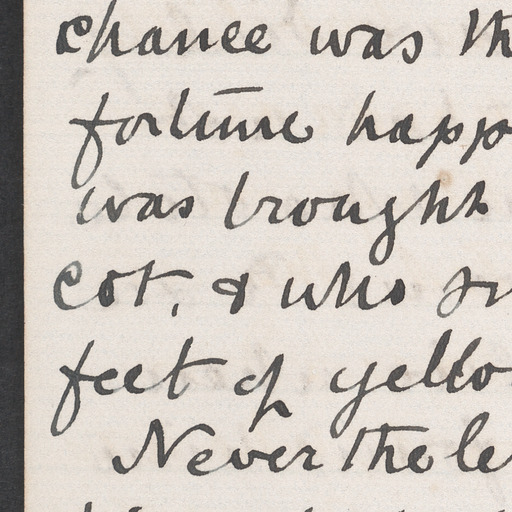 chance was th
fortune happ
was brought
cot, & who
feet of yello
Neverthele